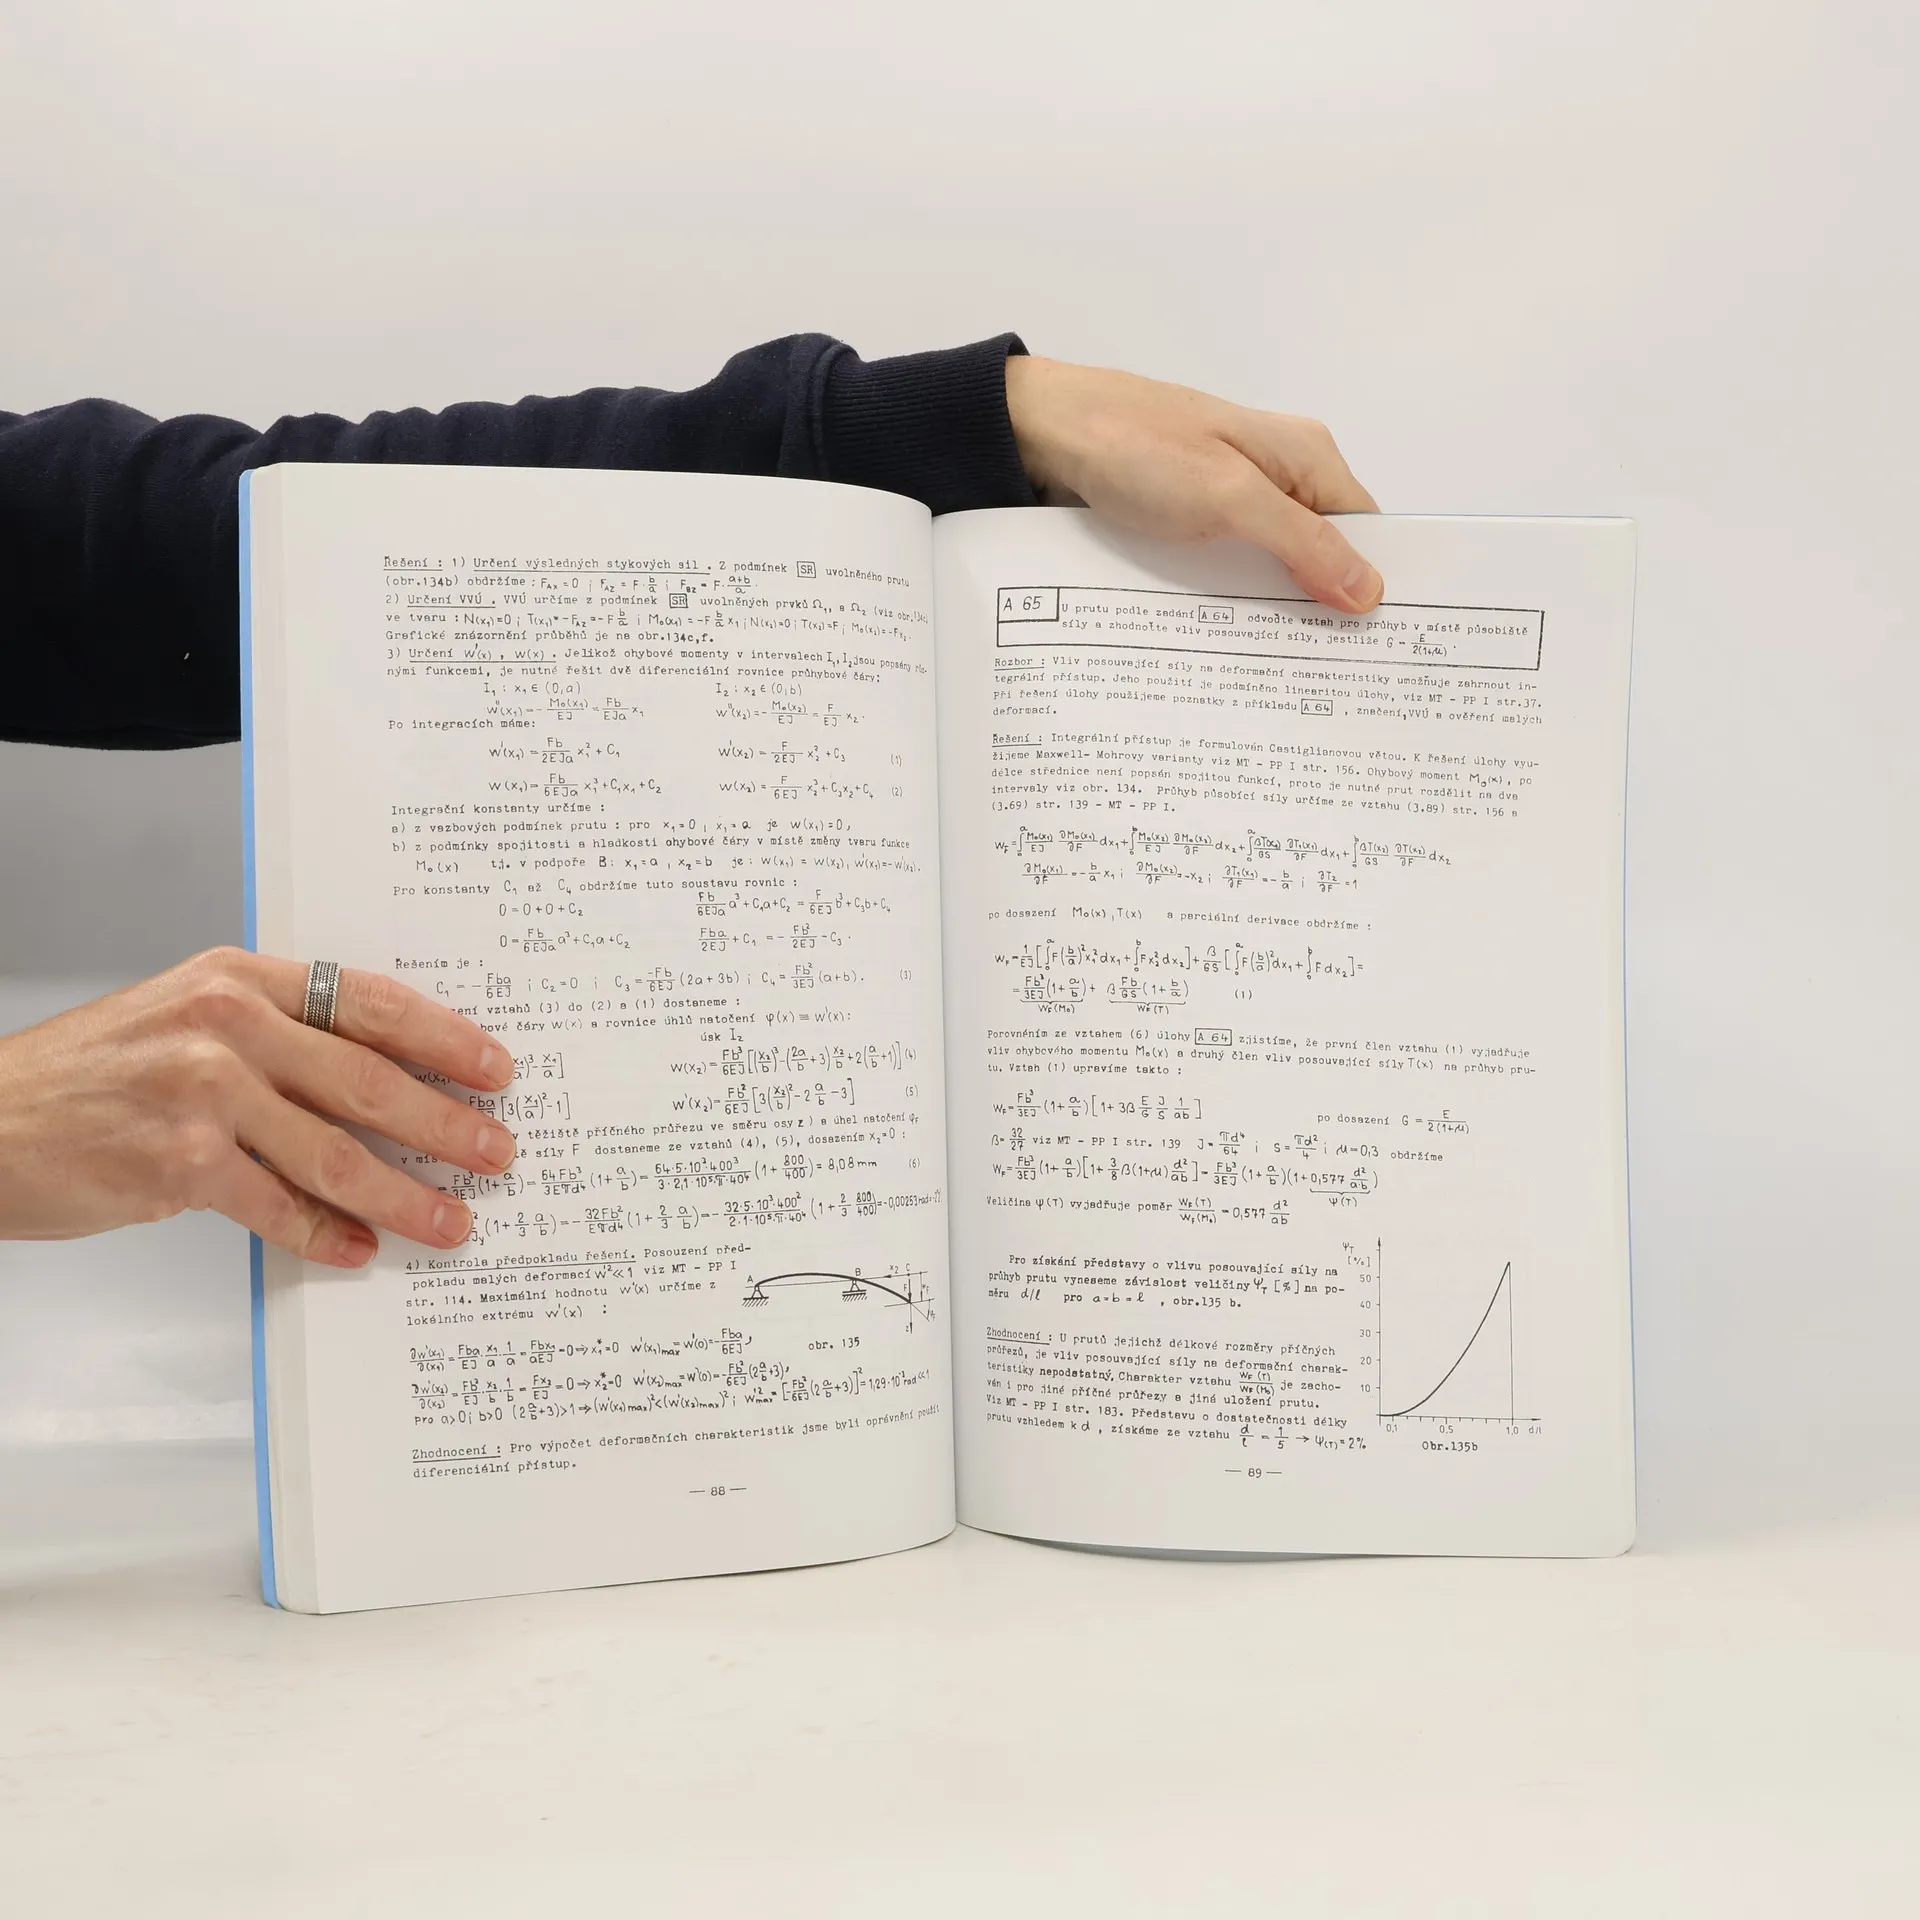 Řešení : 1) Určení výsledných stykových sil . Z podmínek SR uvolněného prutu
(obr.134b) obdržíme : F_Ax = 0 ; F_AZ = F·b/a ; F_BZ = F·(a+b)/a .
2) Určení VVÚ . VVÚ určíme z podmínek SR uvolněných prvků Ω₁, a Ω₂ (viz obr.134c)
ve tvaru : N(x₁)=0 ; T(x₁)=-F_AZ=-F b/a ; Mₒ(x₁) = -F b/a x₁ ; N(x₂)=0 ; T(x₂)=F ; Mₒ(x₂)=-Fx₂.
Grafické znázornění průběhů je na obr.134c,f.
3) Určení w'(x) , w(x) . Jelikož ohybové momenty v intervalech I₁, I₂ jsou popsány růz-
nými funkcemi, je nutné řešit dvě diferenciální rovnice průhybové čáry:
I₁ : x₁ ∈ (0,a) I₂ : x₂ ∈ (0,b)
w''(x₁) = - Mₒ(x₁)/EJ = Fb/EJa x₁ w''(x₂) = - Mₒ(x₂)/EJ = F/EJ x₂ .
Po integracích máme:
w'(x₁) = Fb/2EJa x₁² + C₁ w'(x₂) = F/2EJ x₂² + C₃ (1)
w(x₁) = Fb/6EJa x₁³ + C₁x₁ + C₂ w(x₂) = F/6EJ x₂³ + C₃x₂ + C₄ (2)
Integrační konstanty určíme :
a) z vazbových podmínek prutu : pro x₁ = 0 , x₁ = a je w(x₁) = 0,
b) z podmínky spojitosti a hladkosti ohybové čáry v místě změny tvaru funkce
Mₒ(x) tj. v podpoře B: x₁ = a , x₂ = b je : w(x₁) = w(x₂), w'(x₁) = -w'(x₂).
Pro konstanty C₁ až C₄ obdržíme tuto soustavu rovnic :
0 = 0 + 0 + C₂ Fb/6EJa a³ + C₁a + C₂ = F/6EJ b³ + C₃b + C₄
0 = Fb/6EJa a³ + C₁a + C₂ Fba/2EJ + C₁ = - Fb²/2EJ - C₃ .
Řešením je :
C₁ = - Fba/6EJ ; C₂ = 0 ; C₃ = -Fb/6EJ (2a + 3b) ; C₄ = Fb²/3EJ (a + b). (3)
ení vztahů (3) do (2) a (1) dostaneme :
bové čáry w(x) a rovnice úhlů natočení φ(x) ≡ w'(x):
úsk I₂
w(x₁ x₁/a)³ - x₁/a] w(x₂) = Fb³/6EJ [(x₂/b)³ - (2a/b + 3) x₂/b + 2(a/b + 1)] (4)
Fba [3(x₁/a)² - 1] w'(x₂) = Fb²/6EJ [3(x₂/b)² - 2 a/b - 3] (5)
těžiště příčného průřezu ve směru osy z ) a úhel natočení φ_F
v mís síly F dostaneme ze vztahů (4), (5), dosazením x₂=0 :
= Fb³/3EJ (1 + a/b) = 64Fb³/3Eπd⁴ (1 + a/b) = 64·5·10³·400³/3·2,1·10⁵·π·40⁴ (1 + 800/400) = 8,08 mm (6)
(1 + 2/3 a/b) = - 32Fb²/Eπd⁴ (1 + 2/3 a/b) = - 32·5·10³·400²/2·1·10⁵·π·40⁴ (1 + 2/3 800/400) = -0,00253 rad
4) Kontrola předpokladu řešení. Posouzení před-
pokladu malých deformací w'² ≪ 1 viz MT - PP I
str. 114. Maximální hodnotu w'(x) určíme z
lokálního extrému w'(x) :
A B x₂ C F w_F φ_F z
obr. 135
∂w'(x₁)/∂(x₁) = Fba/EJ · x₁/a · 1/a = Fbx₁/aEJ = 0 ⇒ x₁* = 0 w'(x₁)max = w'(0) = - Fba/6EJ ,
∂w'(x₂)/∂(x₂) = Fb²/EJ · x₂/b · 1/b = Fx₂/EJ = 0 ⇒ x₂* = 0 w'(x₂)max = w'(0) = - Fb²/6EJ (2 a/b + 3),
pro a>0; b>0 (2 a/b + 3) > 1 ⇒ (w'(x₁)max)² < (w'(x₂)max)² ; w'²max = [- Fb²/6EJ (2 a/b + 3)]² = 1,29·10⁻³ rad ≪ 1
Zhodnocení : Pro výpočet deformačních charakteristik jsme byli oprávněni použít
diferenciální přístup.
— 88 —
A 65 U prutu podle zadání A 64 odvoďte vztah pro průhyb v místě působiště
síly a zhodnoťte vliv posouvající síly, jestliže G = E/2(1+μ) .
Rozbor : Vliv posouvající síly na deformační charakteristiky umožňuje zahrnout in-
tegrální přístup. Jeho použití je podmíněno linearitou úlohy, viz MT - PP I str.37.
Při řešení úlohy použijeme poznatky z příkladu A 64 , značení,VVÚ a ověření malých
deformací.
Řešení : Integrální přístup je formulován Castiglianovou větou. K řešení úlohy vyu-
žijeme Maxwell- Mohrovy varianty viz MT - PP I str. 156. Ohybový moment Mₒ(x), po
délce střednice není popsán spojitou funkcí, proto je nutné prut rozdělit na dva
intervaly viz obr. 134. Průhyb působící síly určíme ze vztahu (3.89) str. 156 a
(3.69) str. 139 - MT - PP I.
w_F = ∫₀ᵃ Mₒ(x₁)/EJ ∂Mₒ(x₁)/∂F dx₁ + ∫₀ᵇ Mₒ(x₂)/EJ ∂Mₒ(x₂)/∂F dx₂ + ∫₀ᵃ βT(x₁)/GS ∂T(x₁)/∂F dx₁ + ∫₀ᵇ βT(x₂)/GS ∂T(x₂)/∂F dx₂
∂Mₒ(x₁)/∂F = - b/a x₁ ; ∂Mₒ(x₂)/∂F = -x₂ ; ∂T₁(x₁)/∂F = - b/a ; ∂T₂/∂F = 1
po dosazení Mₒ(x) , T(x) a parciální derivace obdržíme :
w_F = 1/EJ [∫₀ᵃ F(b/a)² x₁² dx₁ + ∫₀ᵇ F x₂² dx₂] + β/GS [∫₀ᵃ F(b/a)² dx₁ + ∫₀ᵇ F dx₂] =
= Fb³/3EJ (1 + a/b) + β Fb/GS (1 + b/a) (1)
w_F(Mₒ) w_F(T)
Porovnáním ze vztahem (6) úlohy A 64 zjistíme, že první člen vztahu (1) vyjadřuje
vliv ohybového momentu Mₒ(x) a druhý člen vliv posouvající síly T(x) na průhyb pru-
tu. Vztah (1) upravíme takto :
w_F = Fb³/3EJ (1 + a/b) [1 + 3β E/G J/S 1/ab] po dosazení G = E/2(1+μ)
β = 32/27 viz MT - PP I str. 139 J = πd⁴/64 ; S = πd²/4 ; μ = 0,3 obdržíme
w_F = Fb³/3EJ (1 + a/b) [1 + 3/8 β(1+μ) d²/ab] = Fb³/3EJ (1 + a/b)(1 + 0,577 d²/a·b)
ψ(T)
Veličina ψ(T) vyjadřuje poměr w_F(T)/w_F(Mₒ) = 0,577 d²/ab
Pro získání představy o vlivu posouvající síly na
průhyb prutu vyneseme závislost veličiny ψ_T [%] na po-
měru d/ℓ pro a = b = ℓ , obr.135 b.
Zhodnocení : U prutů jejichž délkové rozměry příčných
průřezů, je vliv posouvající síly na deformační charak-
teristiky nepodstatný. Charakter vztahu w_F(T)/w_F(Mₒ) je zacho-
ván i pro jiné příčné průřezy a jiná uložení prutu.
Viz MT - PP I str. 183. Představu o dostatečnosti délky
prutu vzhledem k d , získáme ze vztahu d/ℓ = 1/5 → ψ(T) = 2%
ψ_T
[%]
50
40
30
20
10
0,1 0,5 1,0 d/l
Obr.135b
— 89 —